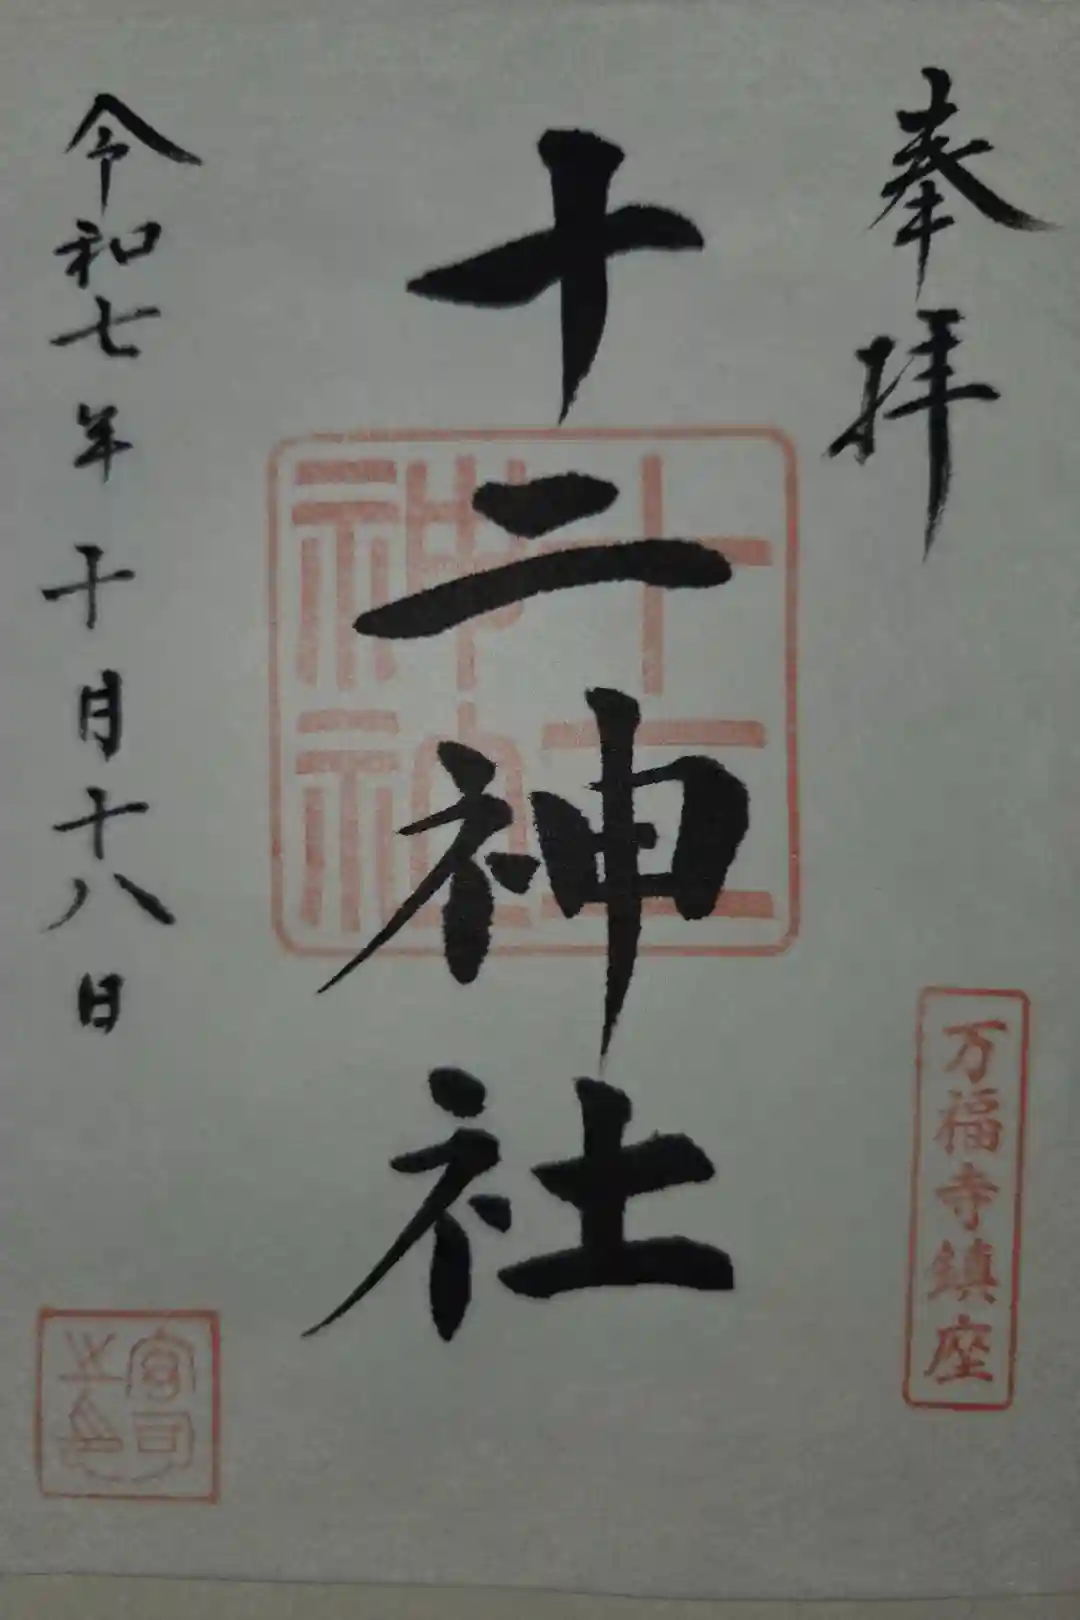 奉拝
万福寺鎮座
十二神社
十二神社
令和七年十月十八日
宮司之印